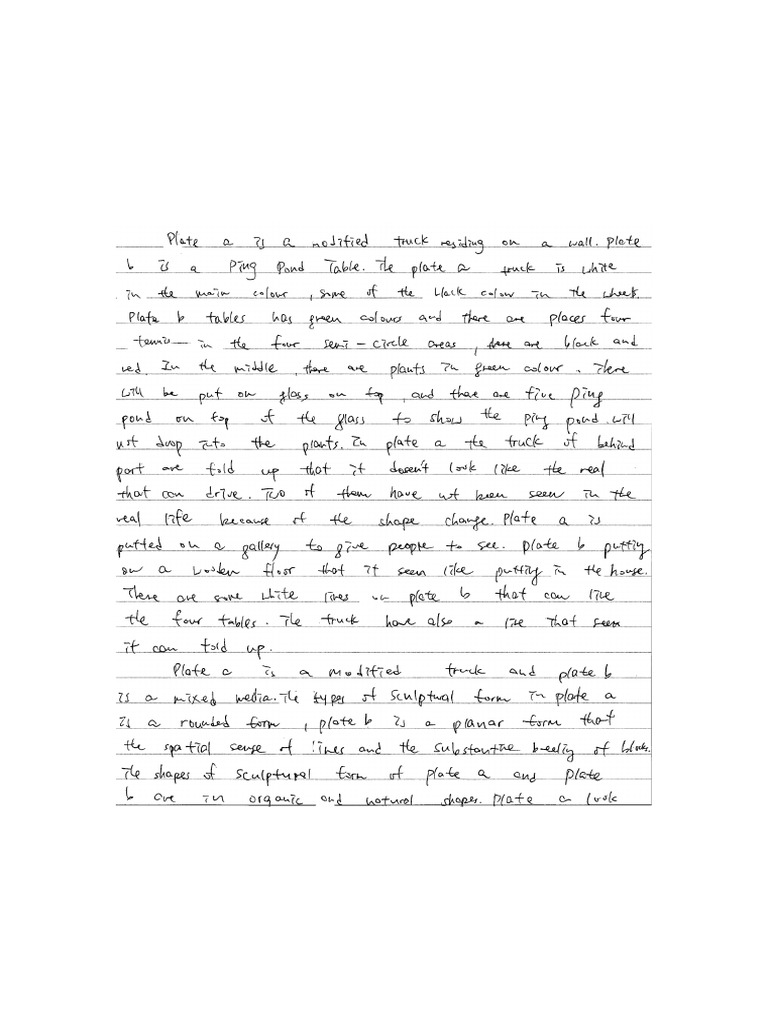 Plate a is a modified truck residing on a wall. Plate
b is a Ping Pond Table. The plate a truck is white
in the main colour, some of the black colour in the wheels.
Plate b tables has green colours and there are places four
tennis in the four semi-circle areas, there are black and
red. In the middle, there are plants in green colour. There
will be put on glass on top, and there are five Ping
pond on top of the glass to show the ping pond will
not drop into the plants. In plate a the truck of behind
part are fold up that it doesn't look like the real
that can drive. Two of them have not been seen in the
real life because of the shape change. Plate a is
putted on a gallery to give people to see. Plate b putting
on a wooden floor that it seen like putting in the house.
There are some white lines on plate b that can like
the four tables. The truck have also a line that seem
it can fold up.
Plate a is a modified truck and plate b
is a mixed media. The types of sculptural form in plate a
is a rounded form, plate b is a planar form that
the spatial sense of lines and the substantive of blocks.
The shapes of sculptural form of plate a and plate
b are in organic and natural shapes. Plate a look